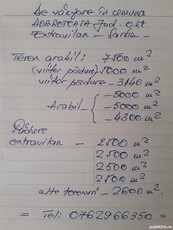 De vânzare în comuna
DOBROTEASA Jud. Olt.
Extravilan - Sarba -
Teren arabil: 7500 m²
(viitor pădure) 5000 m²
viitor pădure - 3140 m²
- 5000 m²
Arabil - 5000 m²
- 4300 m²
Pădure
extravilan - 2500 m²
2500 m²
2500 m²
2500 m²
alte terenuri - 2600 m²
= Tel: 0762966350
publi24.ro